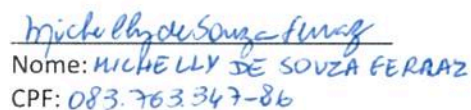 Michelly de Souza Ferraz
Nome: MICHELLY DE SOUZA FERRAZ
CPF: 083.763.347-86